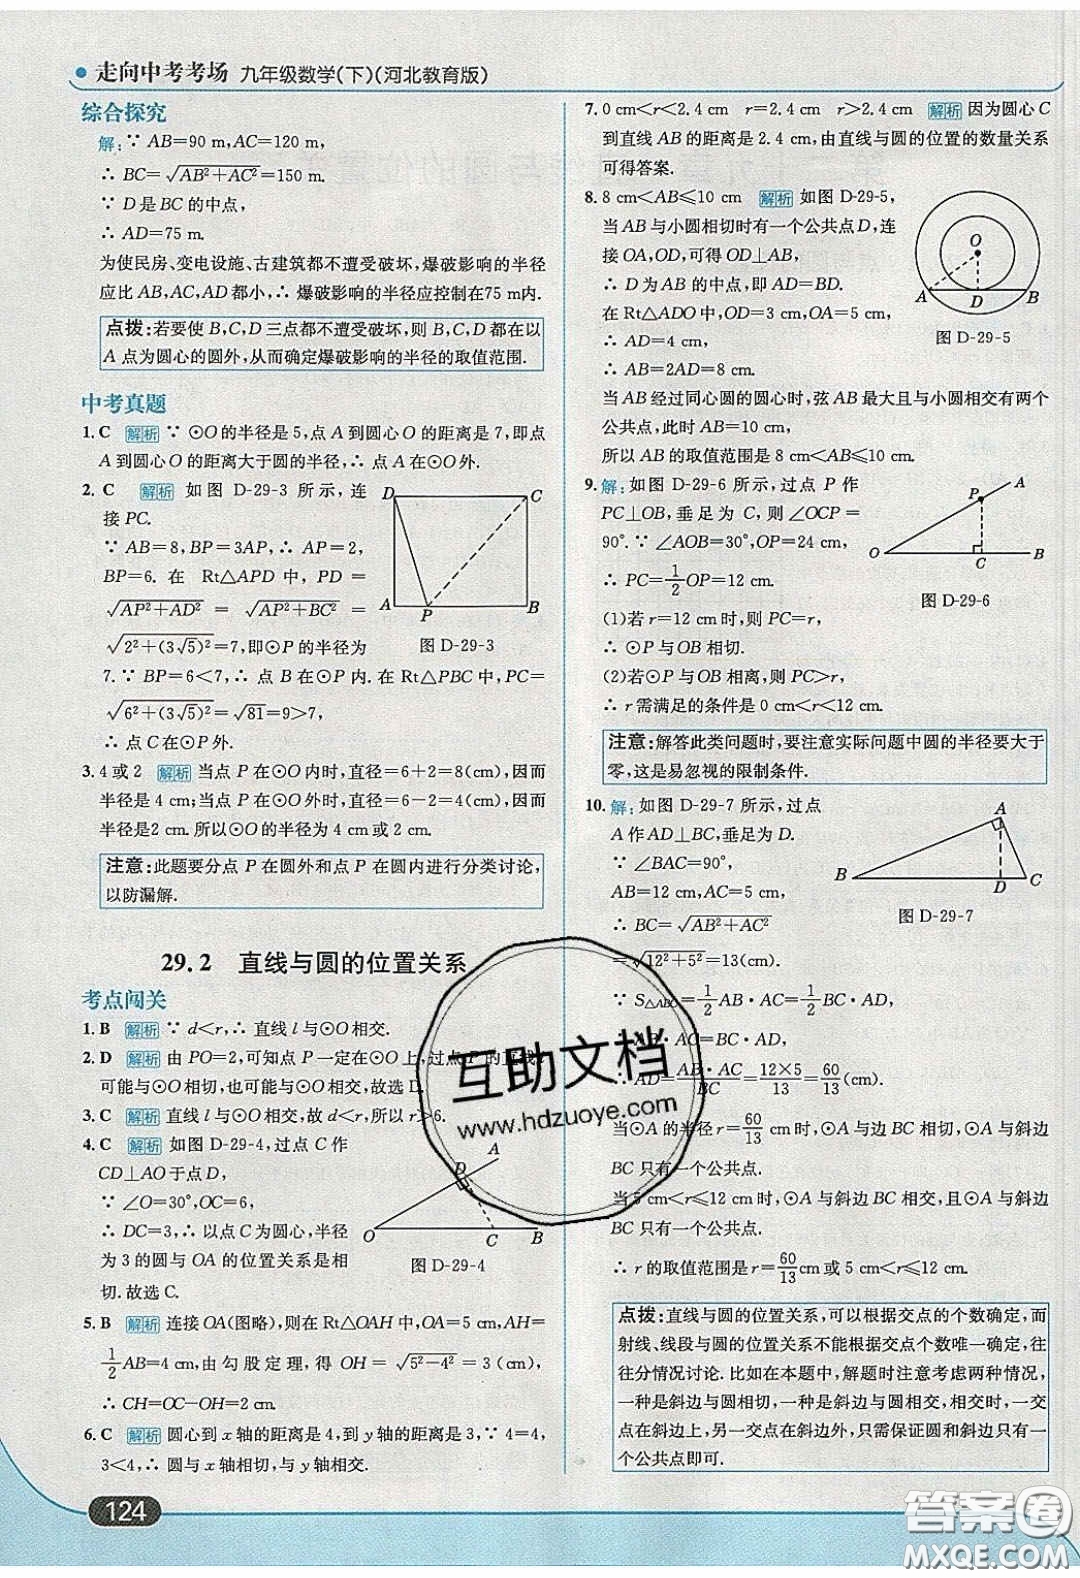 走向中考考场 九年级数学(下)(河北教育版)
综合探究
解:∵ AB=90 m,AC=120 m,
∴ BC=√(AB²+AC²)=150 m.
∵ D是BC的中点,
∴ AD=75 m.
为使民房、变电设施、古建筑都不遭受破坏,爆破影响的半径
应比AB,AC,AD都小,∴ 爆破影响的半径应控制在75 m内.
点拨:若要使B,C,D三点都不遭受破坏,则B,C,D都在以
A点为圆心的圆外,从而确定爆破影响的半径的取值范围.
中考真题
1. C 解析 ∵ ⊙O的半径是5,点A到圆心O的距离是7,即点
A到圆心O的距离大于圆的半径,∴ 点A在⊙O外.
2. C 解析 如图D-29-3所示,连
接PC.
∵ AB=8,BP=3AP,∴ AP=2,
BP=6. 在 Rt△APD 中, PD =
√(AP²+AD²) = √(AP²+BC²) =
√(2²+(3√5)²)=7,即⊙P的半径为
D C A P B
图D-29-3
7. ∵ BP=6<7,∴ 点B在⊙P内. 在Rt△PBC中,PC=
√(6²+(3√5)²)=√81=9>7,
∴ 点C在⊙P外.
3. 4或2 解析 当点P在⊙O内时,直径=6+2=8(cm),因而
半径是4 cm;当点P在⊙O外时,直径=6-2=4(cm),因而
半径是2 cm.所以⊙O的半径为4 cm或2 cm.
注意:此题要分点P在圆外和点P在圆内进行分类讨论,
以防漏解.
29.2 直线与圆的位置关系
考点闯关
1. B 解析 ∵ d<r,∴ 直线l与⊙O相交.
2. D 解析 由PO=2,可知点P一定在⊙O上,过点P的直线l
可能与⊙O相切,也可能与⊙O相交,故选D.
3. C 解析 直线l与⊙O相交,故d<r,所以r>6.
4. C 解析 如图D-29-4,过点C作
CD⊥AO于点D,
∵ ∠O=30°,OC=6,
∴ DC=3,∴ 以点C为圆心,半径
为3的圆与OA的位置关系是相
切.故选C.
A D O C B
图D-29-4
5. B 解析 连接OA(图略),则在Rt△OAH中,OA=5,AH=
1/2AB=4(cm),由勾股定理,得OH=√(5²-4²)=3(cm),
∴ CH=OC-OH=2 cm.
6. C 解析 圆心到x轴的距离是4,到y轴的距离是3,∵ 4=4,
3<4,∴ 圆与x轴相切,与y轴相交.
124
7. 0 cm<r<2.4 cm r=2.4 cm r>2.4 cm 解析 因为圆心C
到直线AB的距离是2.4 cm,由直线与圆的位置的数量关系
可得答案.
8. 8 cm<AB≤10 cm 解析 如图D-29-5,
当AB与小圆相切时有一个公共点D,连
接OA,OD,可得OD⊥AB,
∴ D为AB的中点,即AD=BD.
在Rt△ADO中,OD=3 cm,OA=5 cm,
∴ AD=4 cm,
∴ AB=2AD=8 cm.
O A D B
图D-29-5
当AB经过同心圆的圆心时,弦AB最大且与小圆相交有两个
公共点,此时AB=10 cm,
所以AB的取值范围是8 cm<AB≤10 cm.
9. 解:如图D-29-6所示,过点P作
PC⊥OB,垂足为C,则∠OCP=
90°.∵ ∠AOB=30°,OP=24 cm,
∴ PC=1/2OP=12 cm.
(1)若r=12 cm时,则PC=r,
∴ ⊙P与OB相切.
(2)若⊙P与OB相离,则PC>r,
∴ r需满足的条件是0 cm<r<12 cm.
A P O C B
图D-29-6
注意:解答此类问题时,要注意实际问题中圆的半径要大于
零,这是易忽视的限制条件.
10. 解:如图D-29-7所示,过点
A作AD⊥BC,垂足为D.
∵ ∠BAC=90°,
AB=12 cm,AC=5 cm,
∴ BC=√(AB²+AC²)
=√(12²+5²)=13(cm).
A B D C
图D-29-7
∵ S△ABC=1/2AB·AC=1/2BC·AD,
∴ AB·AC=BC·AD,
∴ AD=AB·AC/BC=12×5/13=60/13(cm).
当⊙A的半径r=60/13 cm时,⊙A与边BC相切,⊙A与斜边
BC只有一个公共点.
当5 cm<r≤12 cm时,⊙A与斜边BC相交,且⊙A与斜边
BC只有一个公共点.
∴ r的取值范围是r=60/13 cm或5 cm<r≤12 cm.
点拨:直线与圆的位置关系,可以根据交点的个数确定,而
射线、线段与圆的位置关系不能根据交点个数唯一确定,往
往分情况讨论. 比如在本题中,解题时注意考虑两种情况,
一种是斜边与圆相切,一种是斜边与圆相交,相交时,一交
点在斜边上,另一交点在斜边外,只需保证圆和斜边只有一
个公共点即可.
互助文档
www.hdzuoye.com
答案圈
MXQE.COM